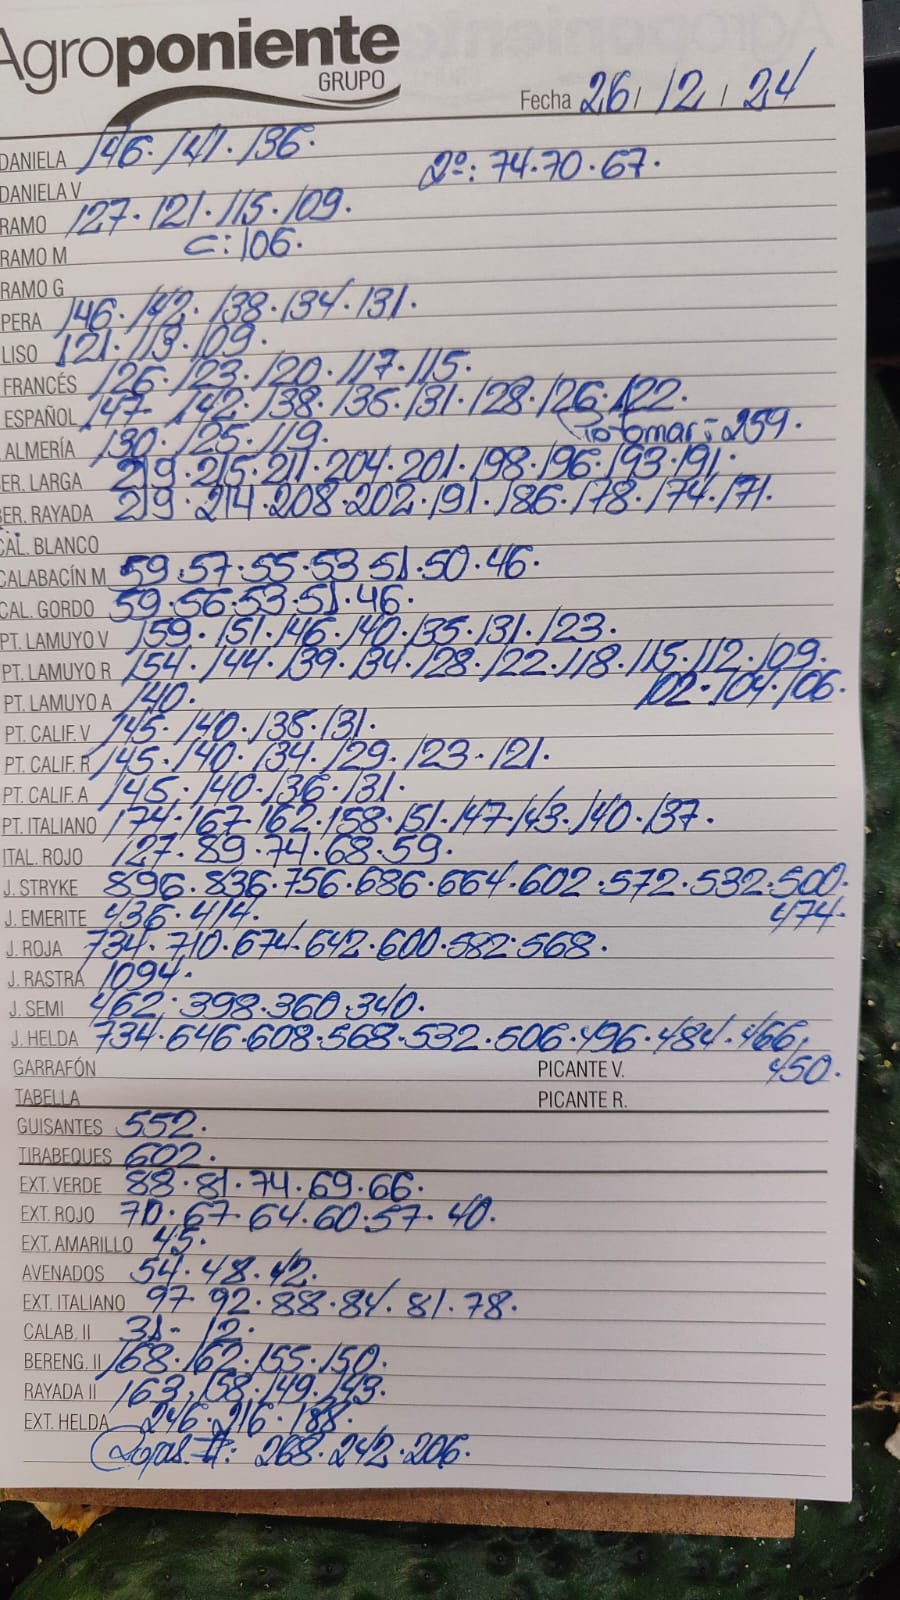 Agroponiente
GRUPO
Fecha 26/ 12 / 24
DANIELA 146. 141. 136.
2º: 74.70.67.
DANIELA V
RAMO 127. 121. 115. 109.
RAMO M C: 106.
RAMO G
PERA 146. 142. 138. 134. 131.
LISO 121. 113. 109.
FRANCÉS 126. 123. 120. 117. 115.
ESPAÑOL 147. 142. 138. 135. 131. 128. 126. 122.
ALMERÍA 130. 125. 119. 259.
BER. LARGA 219. 215. 211. 204. 201. 198. 196. 193. 191.
BER. RAYADA 219. 214. 208. 202. 191. 186. 178. 174. 171.
CAL. BLANCO
CALABACÍN M 59.57.55.53 51.50.46.
CAL. GORDO 59.56.53.51.46.
PT. LAMUYO V 159. 151. 146. 140. 135. 131. 123.
PT. LAMUYO R 154. 144. 139. 134. 128. 122. 118. 115. 112. 109.
PT. LAMUYO A 140. 102. 104. 106.
PT. CALIF. V 145. 140. 135. 131.
PT. CALIF. R 145. 140. 134. 129. 123. 121.
PT. CALIF. A 145. 140. 136. 131.
PT. ITALIANO 174. 167. 162. 158. 151. 147. 143. 140. 137.
ITAL. ROJO 127. 89. 74. 68. 59.
J. STRYKE 896. 836. 756. 686. 664. 602. 572. 532. 500.
J. EMERITE 436. 414. 474.
J. ROJA 734. 710. 674. 642. 600. 582. 568.
J. RASTRA 1094.
J. SEMI 462. 398. 360. 340.
J. HELDA 734. 646. 608. 568. 532. 506. 496. 484. 466.
GARRAFÓN PICANTE V. 450.
TABELLA PICANTE R.
GUISANTES 552.
TIRABEQUES 602.
EXT. VERDE 88. 81. 74. 69. 66.
EXT. ROJO 70. 67. 64. 60. 57. 40.
EXT. AMARILLO 45.
AVENADOS 54. 48. 42.
EXT. ITALIANO 97 92. 88. 84. 81. 78.
CALAB. II 31. 12.
BERENG. II 168. 162. 155. 150.
RAYADA II 163. 158. 149. 143.
EXT. HELDA 246. 216. 188.
268. 242. 206.